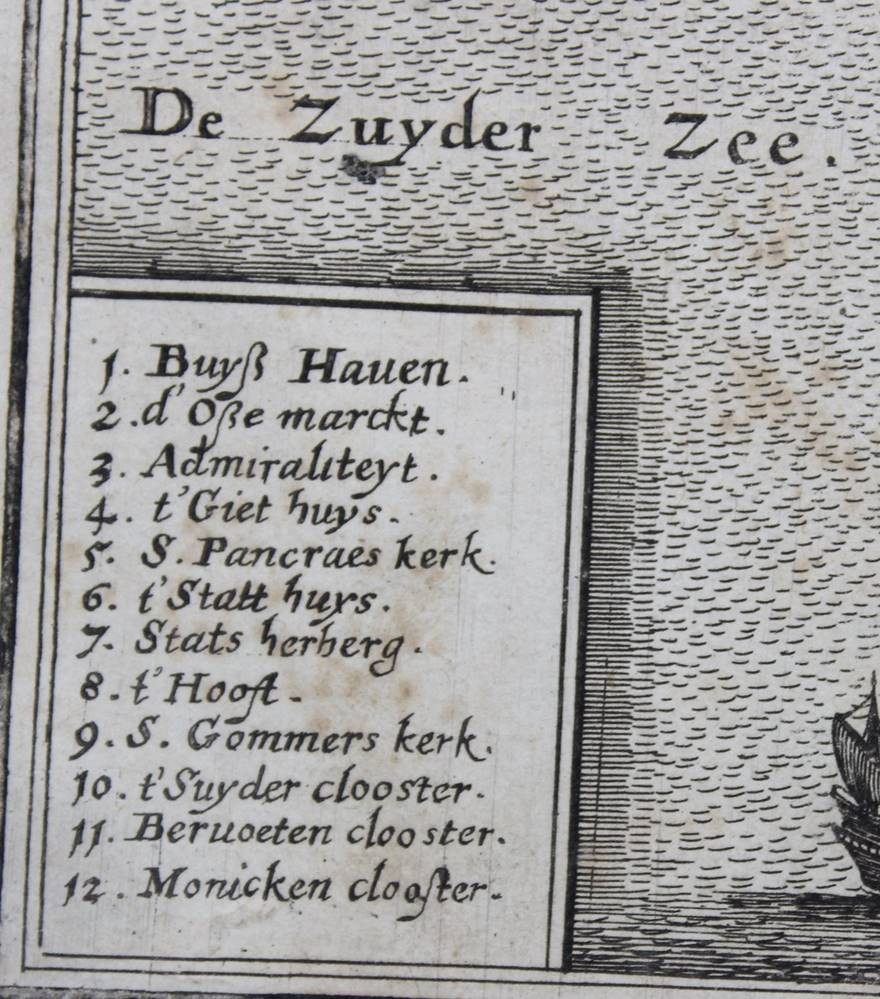 De Zuyder Zee.
1. Buyß Hauen.
2. d'Oße marckt.
3. Admiraliteyt.
4. t'Giet huys.
5. S. Pancraes kerk.
6. t'Statt huys.
7. Stats herberg.
8. t'Hooft.
9. S. Gommers kerk.
10. t'Suyder clooster.
11. Beruoeten clooster.
12. Monicken clooster.